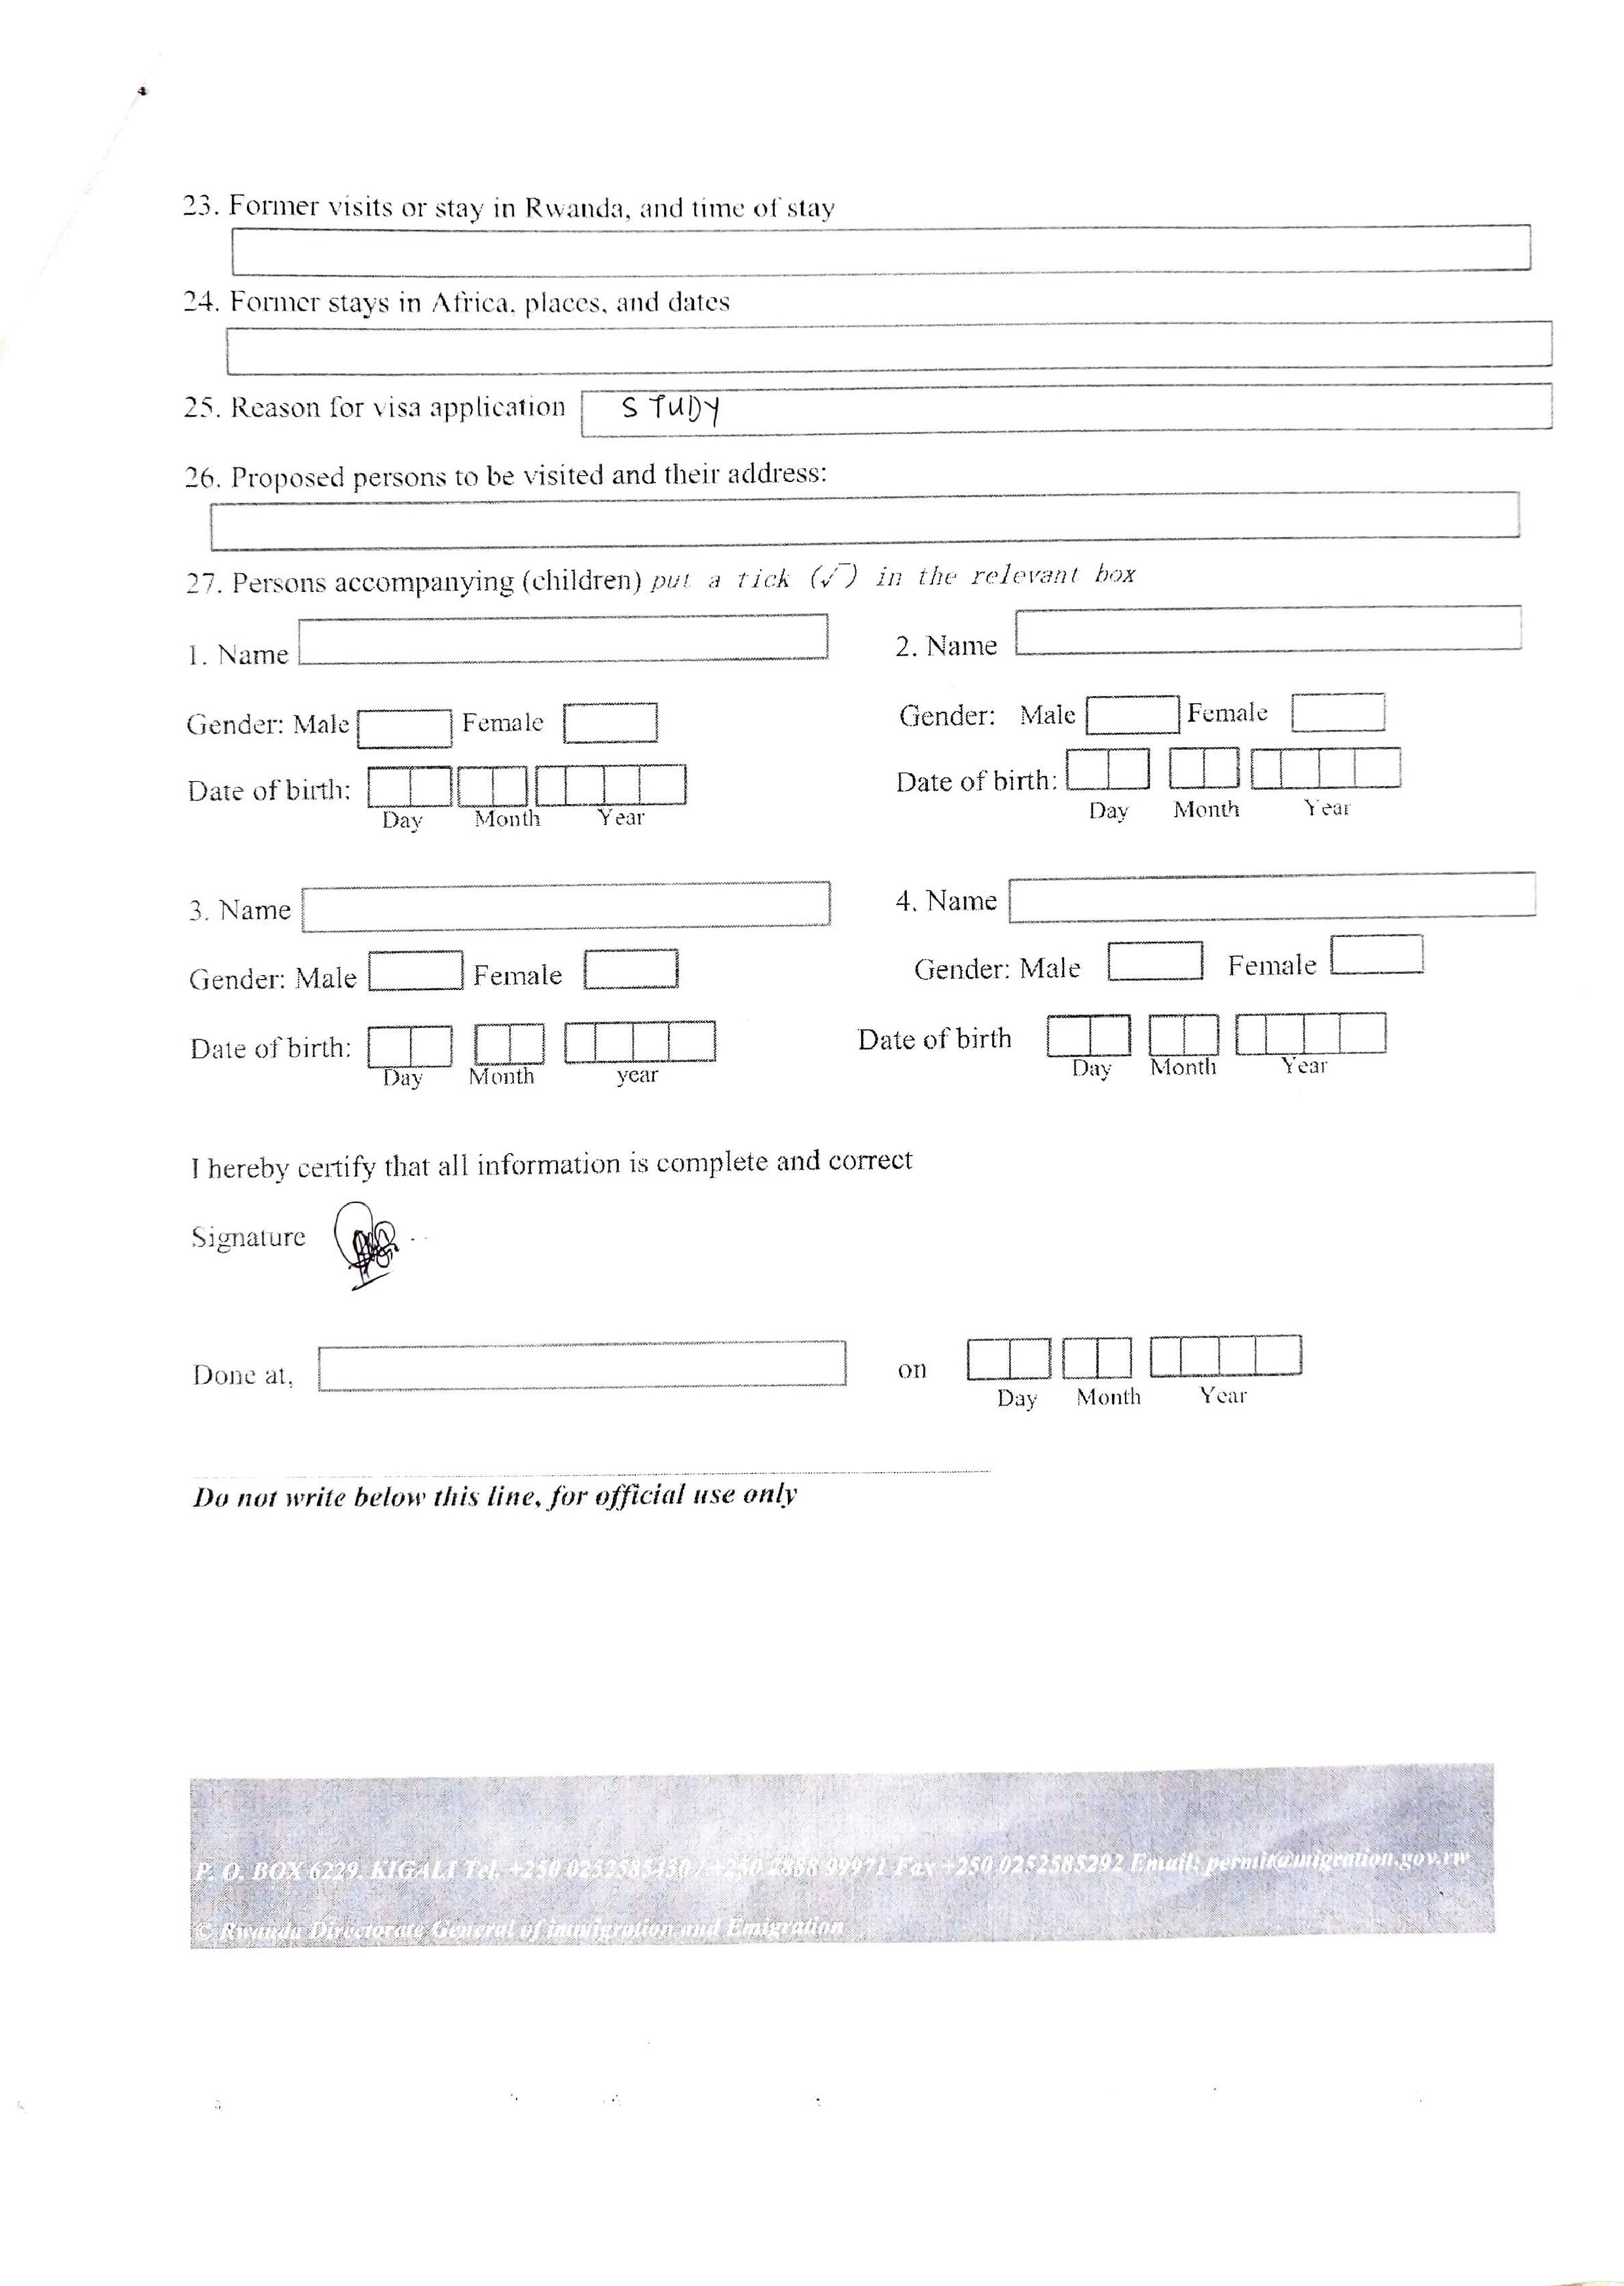 23. Former visits or stay in Rwanda, and time of stay
24. Former stays in Africa, places, and dates
25. Reason for visa application STUDY
26. Proposed persons to be visited and their address:
27. Persons accompanying (children) put a tick (√) in the relevant box
1. Name 2. Name
Gender: Male Female Gender: Male Female
Date of birth: Date of birth:
Day Month Year Day Month Year
3. Name 4. Name
Gender: Male Female Gender: Male Female
Date of birth: Date of birth
Day Month year Day Month Year
I hereby certify that all information is complete and correct
Signature
Done at, on
Day Month Year
Do not write below this line, for official use only
P. O. BOX 6229, KIGALI Tel. +250 0252585430 / +250 2888 99971 Fax +250 0252585292 Email: permit@migration.gov.rw
© Rwanda Directorate General of immigration and Emigration